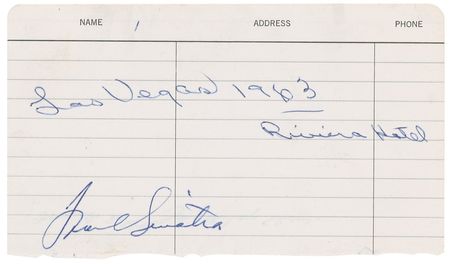 NAME ADDRESS PHONE
Las Vegas 1963
Riviera Hotel
Frank Sinatra